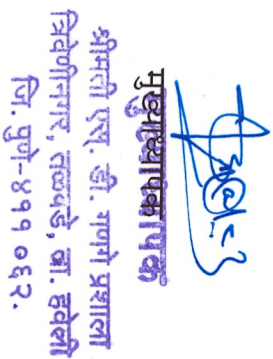 मुख्याध्यापक
श्रीमती एस. डी. गणगे प्रशाला
त्रिवेणीनगर, तळवडे, ता. हवेली
जि. पुणे-४११ ०६२.